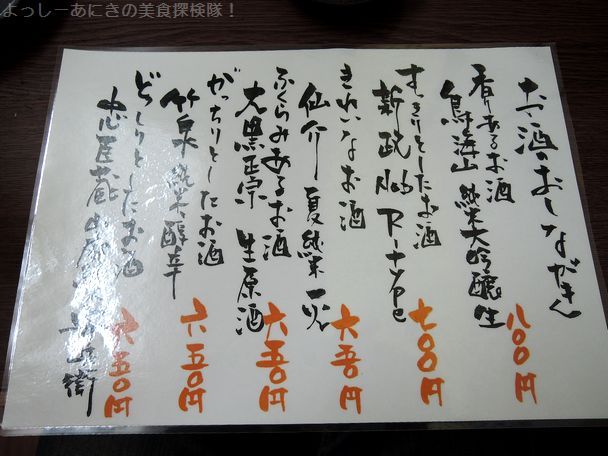 よっしーあにきの美食探検隊！
お酒のおしながき
香りあるお酒
鳥海山 純米大吟醸生
八〇〇円
すっきりとしたお酒
新政 No6 R-type
七〇〇円
きれいなお酒
仙介 夏純米
六五〇円
ふくらみあるお酒
大黒正宗 生原酒
六五〇円
がっちりとしたお酒
竹泉 純米醇辛
六五〇円
どっしりとしたお酒
忠臣蔵 山廃
六五〇円